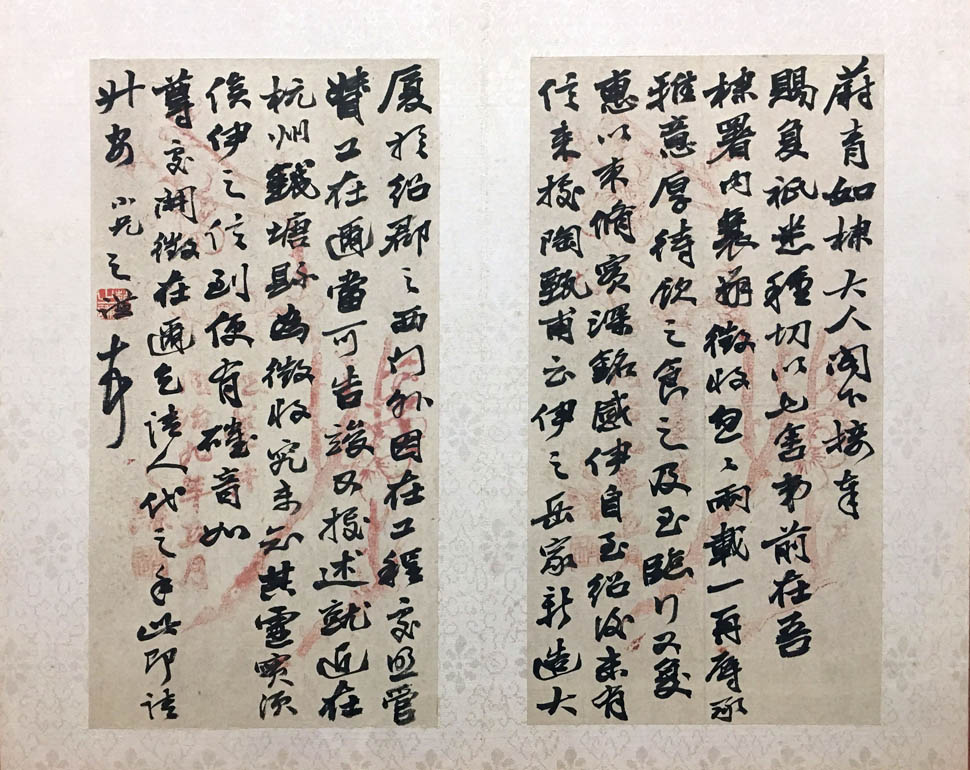 蔚青如棣大人閣下接奉
賜复祇悉種切以七舍弟前在吾
棣署内襄辦徵收怱〻兩載一再辱承
雅意厚待飲之食之及至臨行又受
惠以束脩实深銘感伊自至紹後未有
信来按陶甄甫云伊之岳家新造大
廈於紹郡之西门外因在工程處照管
賛工在邇當可告竣又按述就近在
杭州錢塘縣為徵收究未知其虛實須
俟伊之信到便有確音如
尊處開徵在邇乞請人代之手此即請
升安 小兄之 頓